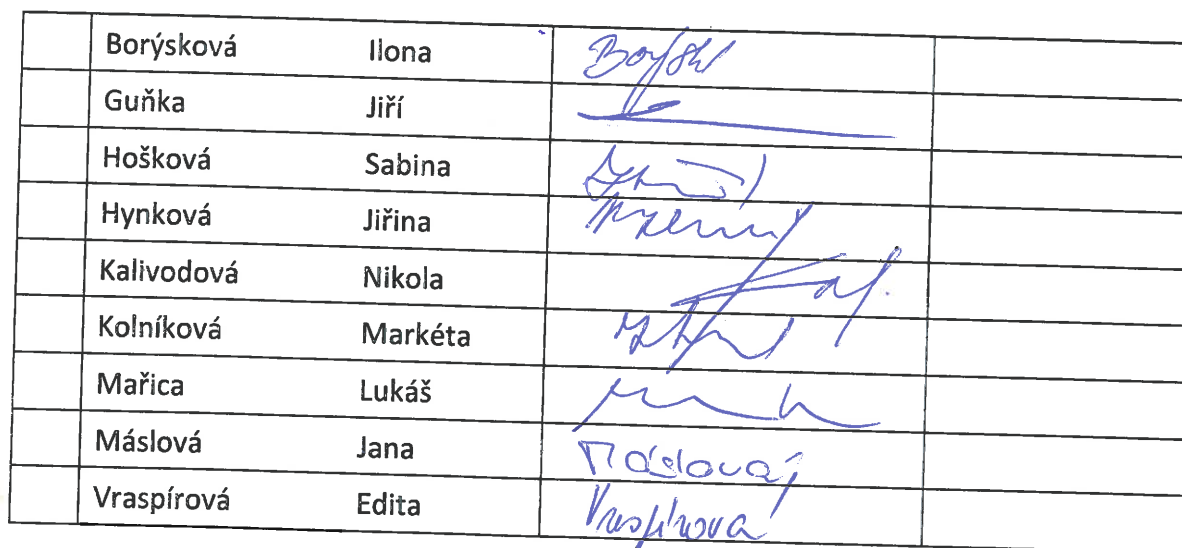 Borýsková Ilona
Guňka Jiří
Hošková Sabina
Hynková Jiřina
Kalivodová Nikola
Kolníková Markéta
Mařica Lukáš
Máslová Jana Máslová
Vraspírová Edita Vraspírová